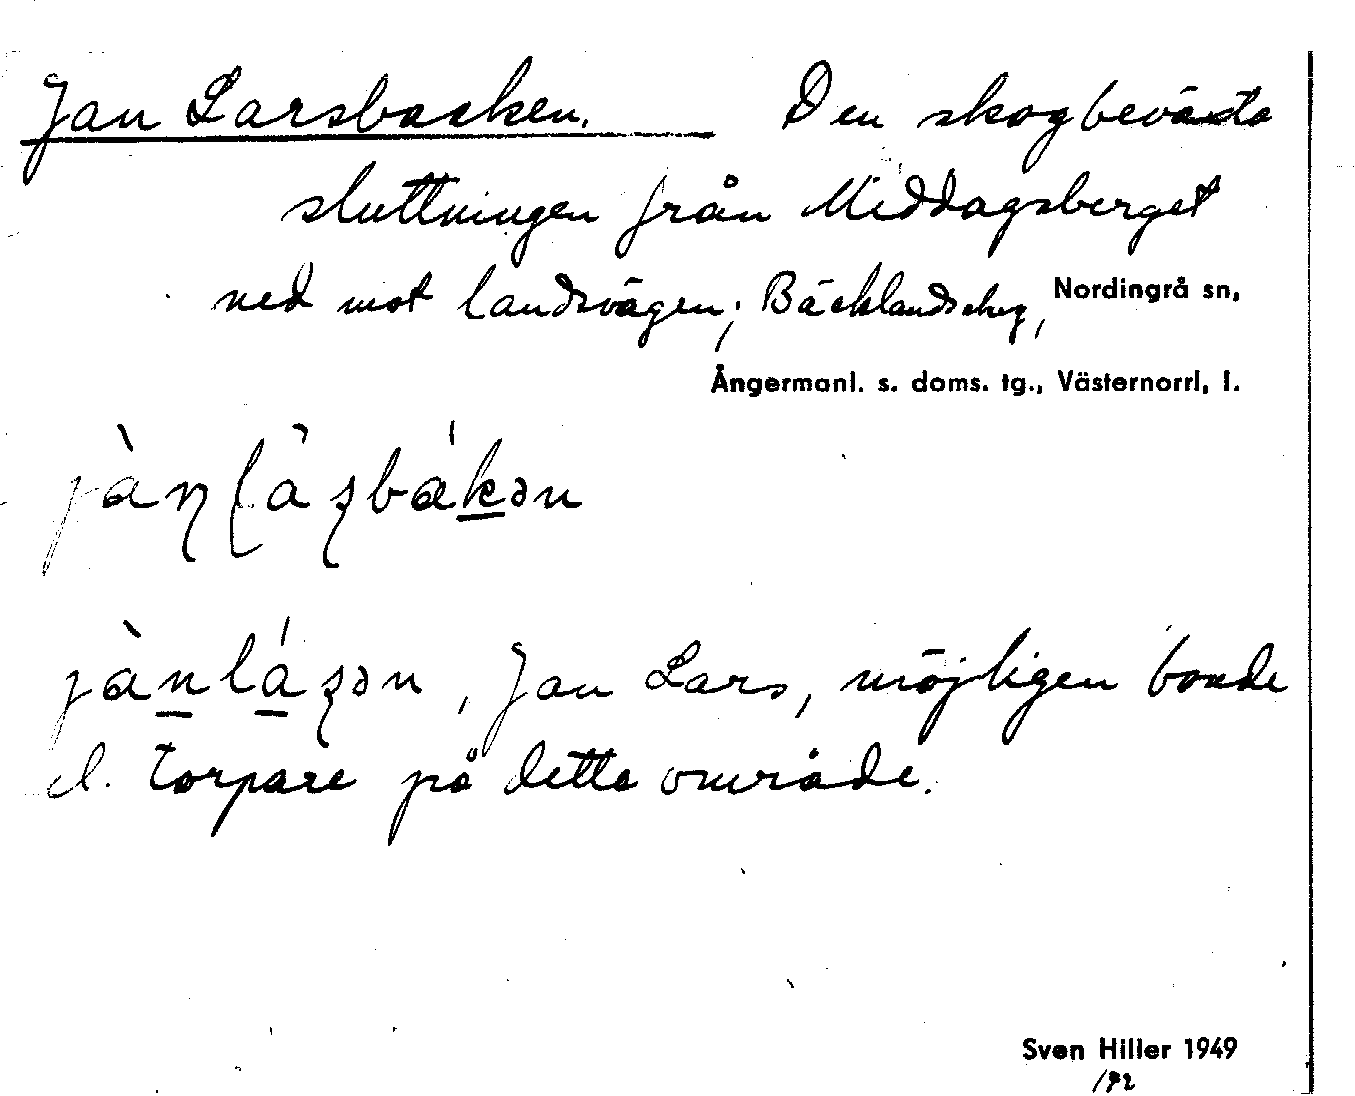 Jan Larsbacken. Den skogbevöxta
sluttningen från Middagsberget
ned mot landsvägen; Bäcklandsehg, Nordingrå sn,
Ångermanl. s. doms. tg., Västernorrl. l.
jàn̨ḷàşbákən
jànláşən, Jan Lars, möjligen bonde
el. torpare på detta område.
Sven Hiller 1949
192